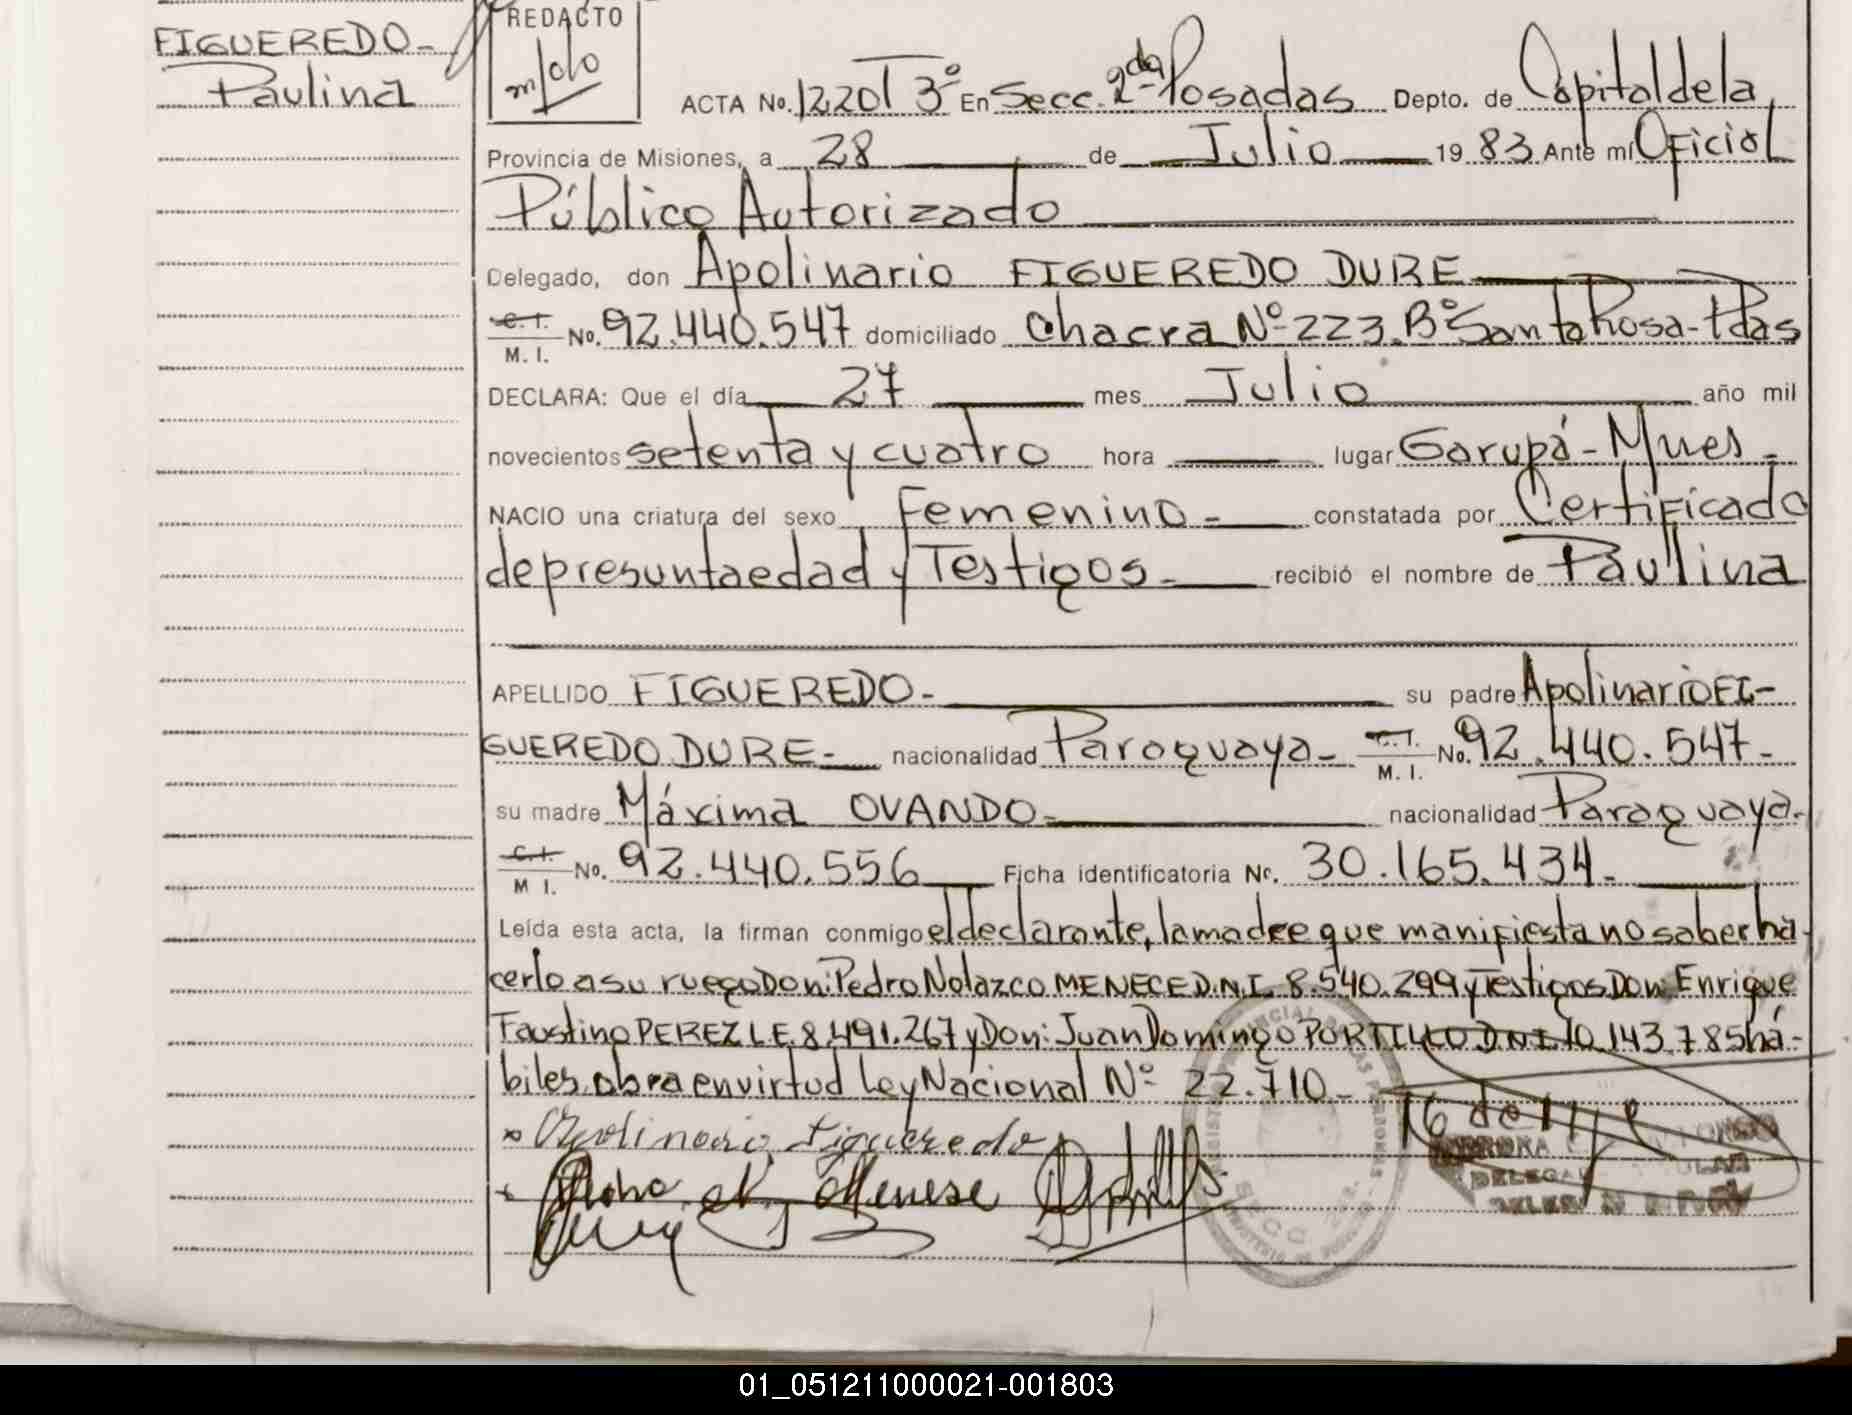 FIGUEREDO-
Paulina
REDACTO
ACTA No. 1220 T 3º En Secc. 2da Posadas Depto. de Capital de la
Provincia de Misiones, a 28 de Julio 1983 Ante mí Oficial
Público Autorizado
Delegado, don Apolinario FIGUEREDO DURE
C. I. M. I. No. 92.440.547 domiciliado Chacra Nº 223. Bº Santa Rosa-Pdas
DECLARA: Que el día 27 mes Julio año mil
novecientos setenta y cuatro hora lugar Garupá-Mnes-
NACIO una criatura del sexo Femenino- constatada por Certificado
de presunta edad y Testigos- recibió el nombre de Paulina
APELLIDO FIGUEREDO- su padre Apolinario FI-
GUEREDO DURE- nacionalidad Paraguaya- C. I. M. I. No. 92.440.547-
su madre Máxima OVANDO- nacionalidad Paraguaya-
C. I. M. I. No. 92.440.556 Ficha identificatoria Nº. 30.165.434-
Leída esta acta, la firman conmigo el declarante, la madre que manifiesta no saber ha-
cerlo a su ruego Don: Pedro Nolazco MENECE D.N.I. 8.540.299 y Testigos Don: Enrique
Faustino PEREZ L.E. 8.491.267 y Don: Juan Domingo PORTILLO D.N.I. 10.143.785 há-
biles, obra en virtud Ley Nacional Nº 22.710-
Apolinario Figueredo
DELEGA
01_051211000021-001803